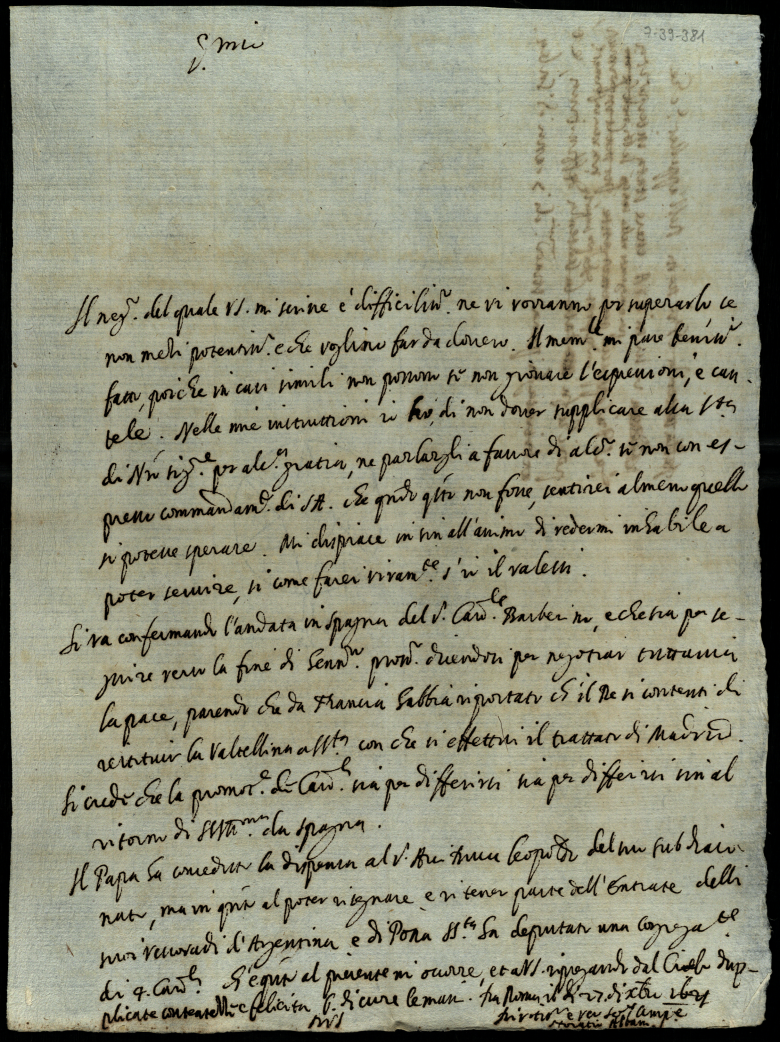 7-39-381
S. mio
Il neg.º del quale VS. mi scrive è difficiliss.º ne vi vorranno per superarlo se
non mezi potentiss.i e che voglino far da dovero. Il mem.le mi pare beniss.º
fatto, poiche in casi simili non possono se non giovare l'espressioni, e cau-
tele. Nelle mie instruttioni io ho, di non dover supplicare alla S.tà
di N.ro Sig.re per alc.a gratia, ne parlargli a favore di alc.º se non con es-
presso commandam.º di SA. che q.ndo q.sto non fosse, sentirei almeno quello
si potesse sperare. Mi dispiace in sin all'animo di vedermi inhabile a
poter servire, si come farei vivam.te s'io il valessi.
Si va confermando l'andata in Spagna del S. Card.le Barberino, e che sia per se-
guire verso la fine di Genn.º pross.º dicendosi per negotiar tuttavia
la pace, parendo che da Francia habbia riportato ch'il Re si contenti di
restituir la Valtellina a SS.tà con che si effettui il trattato di Madrid.
Si crede che la promot.e de Card.li sia per differirsi sia per differirsi sin al
ritorno di SS.Ill.ma da Spagna.
Il Papa ha conceduto la dispensa al S. Arciduca Leopoldo del suo subdiaco-
nato, ma in q.nto al poter rassegnare e ritener parte dell'Entrate delli
suoi vescovadi d'Argentina e di Pona SS.tà ha deputato una congreg.ne
di 4. Card.li Ch'è q.nto al presente mi occorre, et a VS. pregando dal Cielo dup-
plicate contentezze e felicità b. di cuore le mani. Di Roma il dì 27 di Xbre 1625
DVS